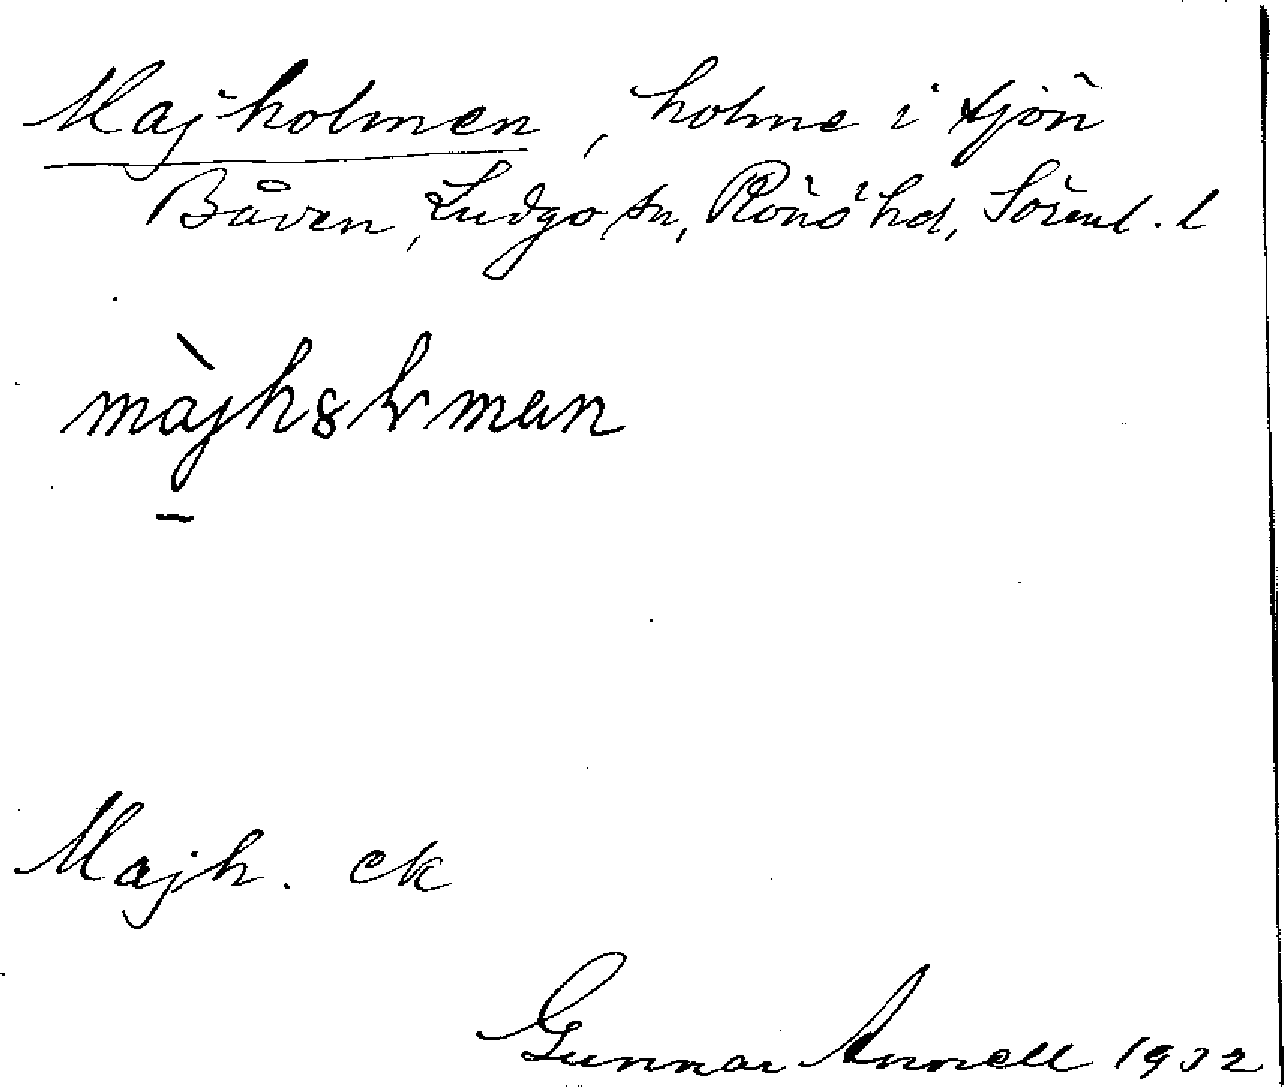 Majholmen, holme i sjön
Båven, Ludgo sn, Rönö hd, Söreml. l
màjhɷlman
Majh. ek
Gunnar Annell 1932